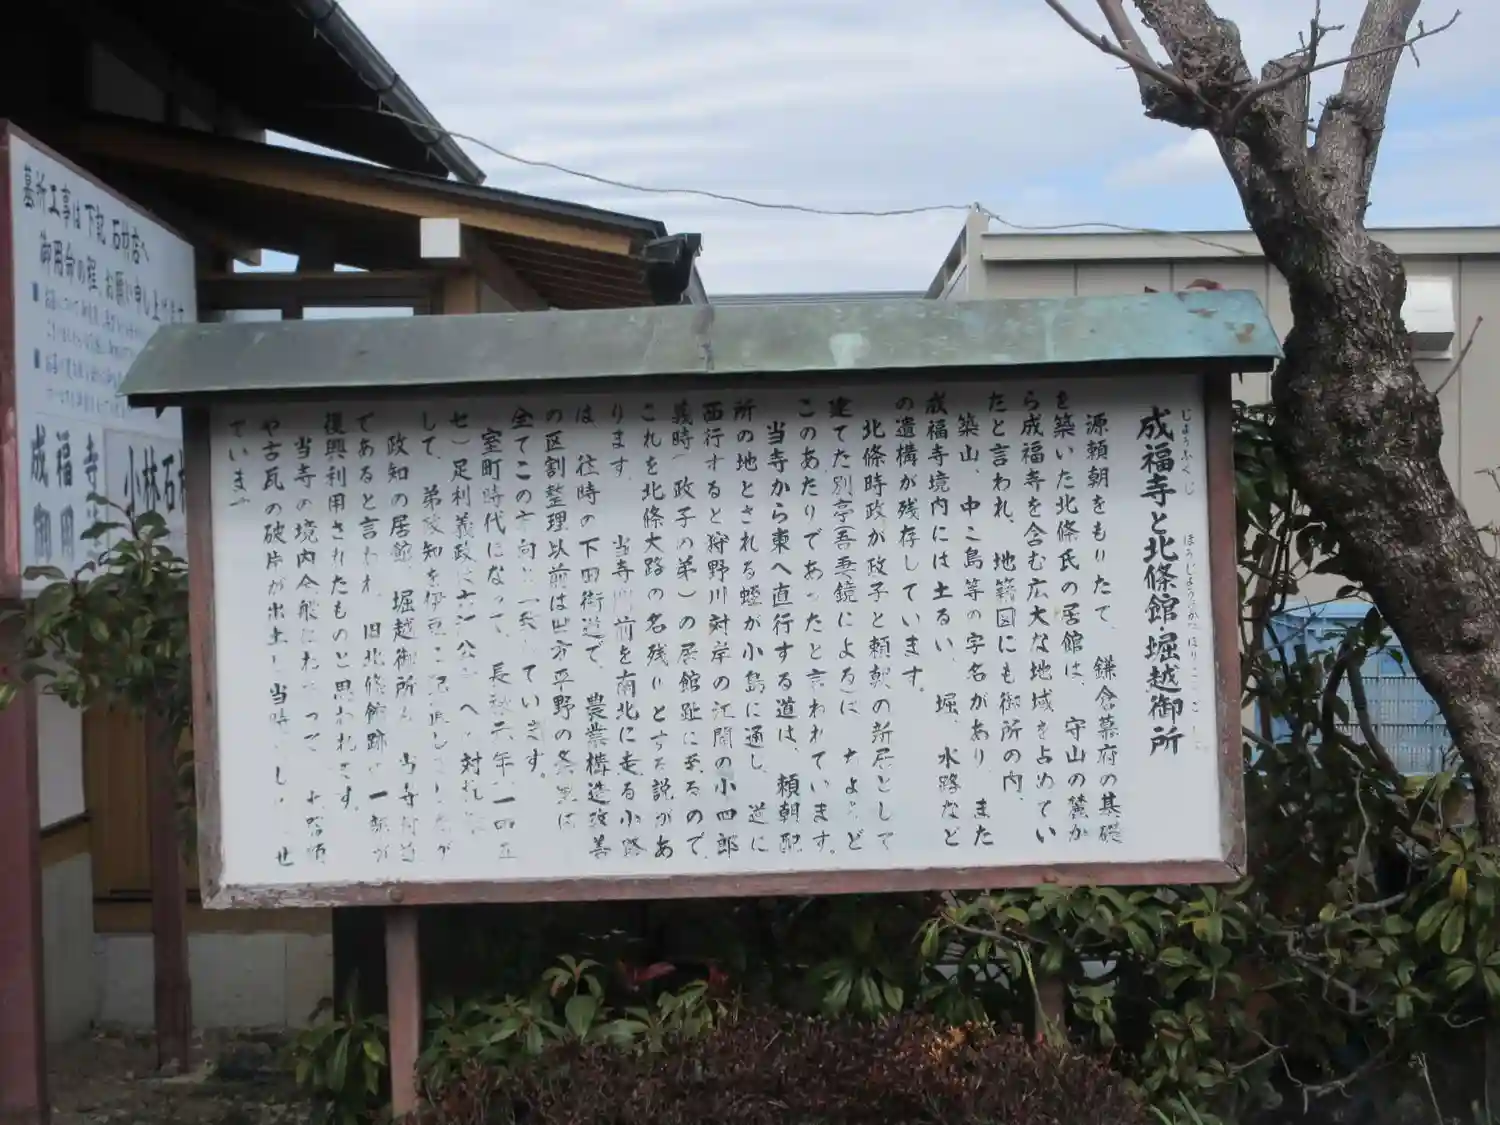 成福寺と北條館 堀越御所
じょうふくじ
ほうじょうやかた
源頼朝をもりたて、鎌倉幕府の基礎
を築いた北條氏の居館は、守山の麓か
ら成福寺を含む広大な地域を占めてい
たと言われ、地籍図にも御所の内、
築山、中ノ島等の字名があり、また
成福寺境内には土るい、堀、水路など
の遺構が残存しています。
北條時政が政子と頼朝の新居として
建てた別亭(吾妻鏡による)は、ちょうど
このあたりであったと言われています。
当寺から東へ直行する道は、頼朝配
所の地とされる蛭が小島に通し、逆に
西行すると狩野川対岸の江間の小四郎
義時(政子の弟)の居館趾に至るので、
これを北條大路の名残りとする説があ
ります。当寺門前を南北に走る小路
は、往時の下田街道で、農業構造改善
の区割整理以前は田方平野の条里は
全てこの方向と一致していました。
室町時代になって、長禄元年(一四五
七)足利義政は
して、弟政知を伊豆に
政知の居館、堀越御所も、当寺付近
であると言われ、旧北條館跡の一部が
復興利用されたものと思われます。
当寺の境内全般にわたって、
や古瓦の破片が出土し当時
ています
墓所工事は下記石材店へ
御用命の程、お願い申し上げます
成福寺
御用
小林石材